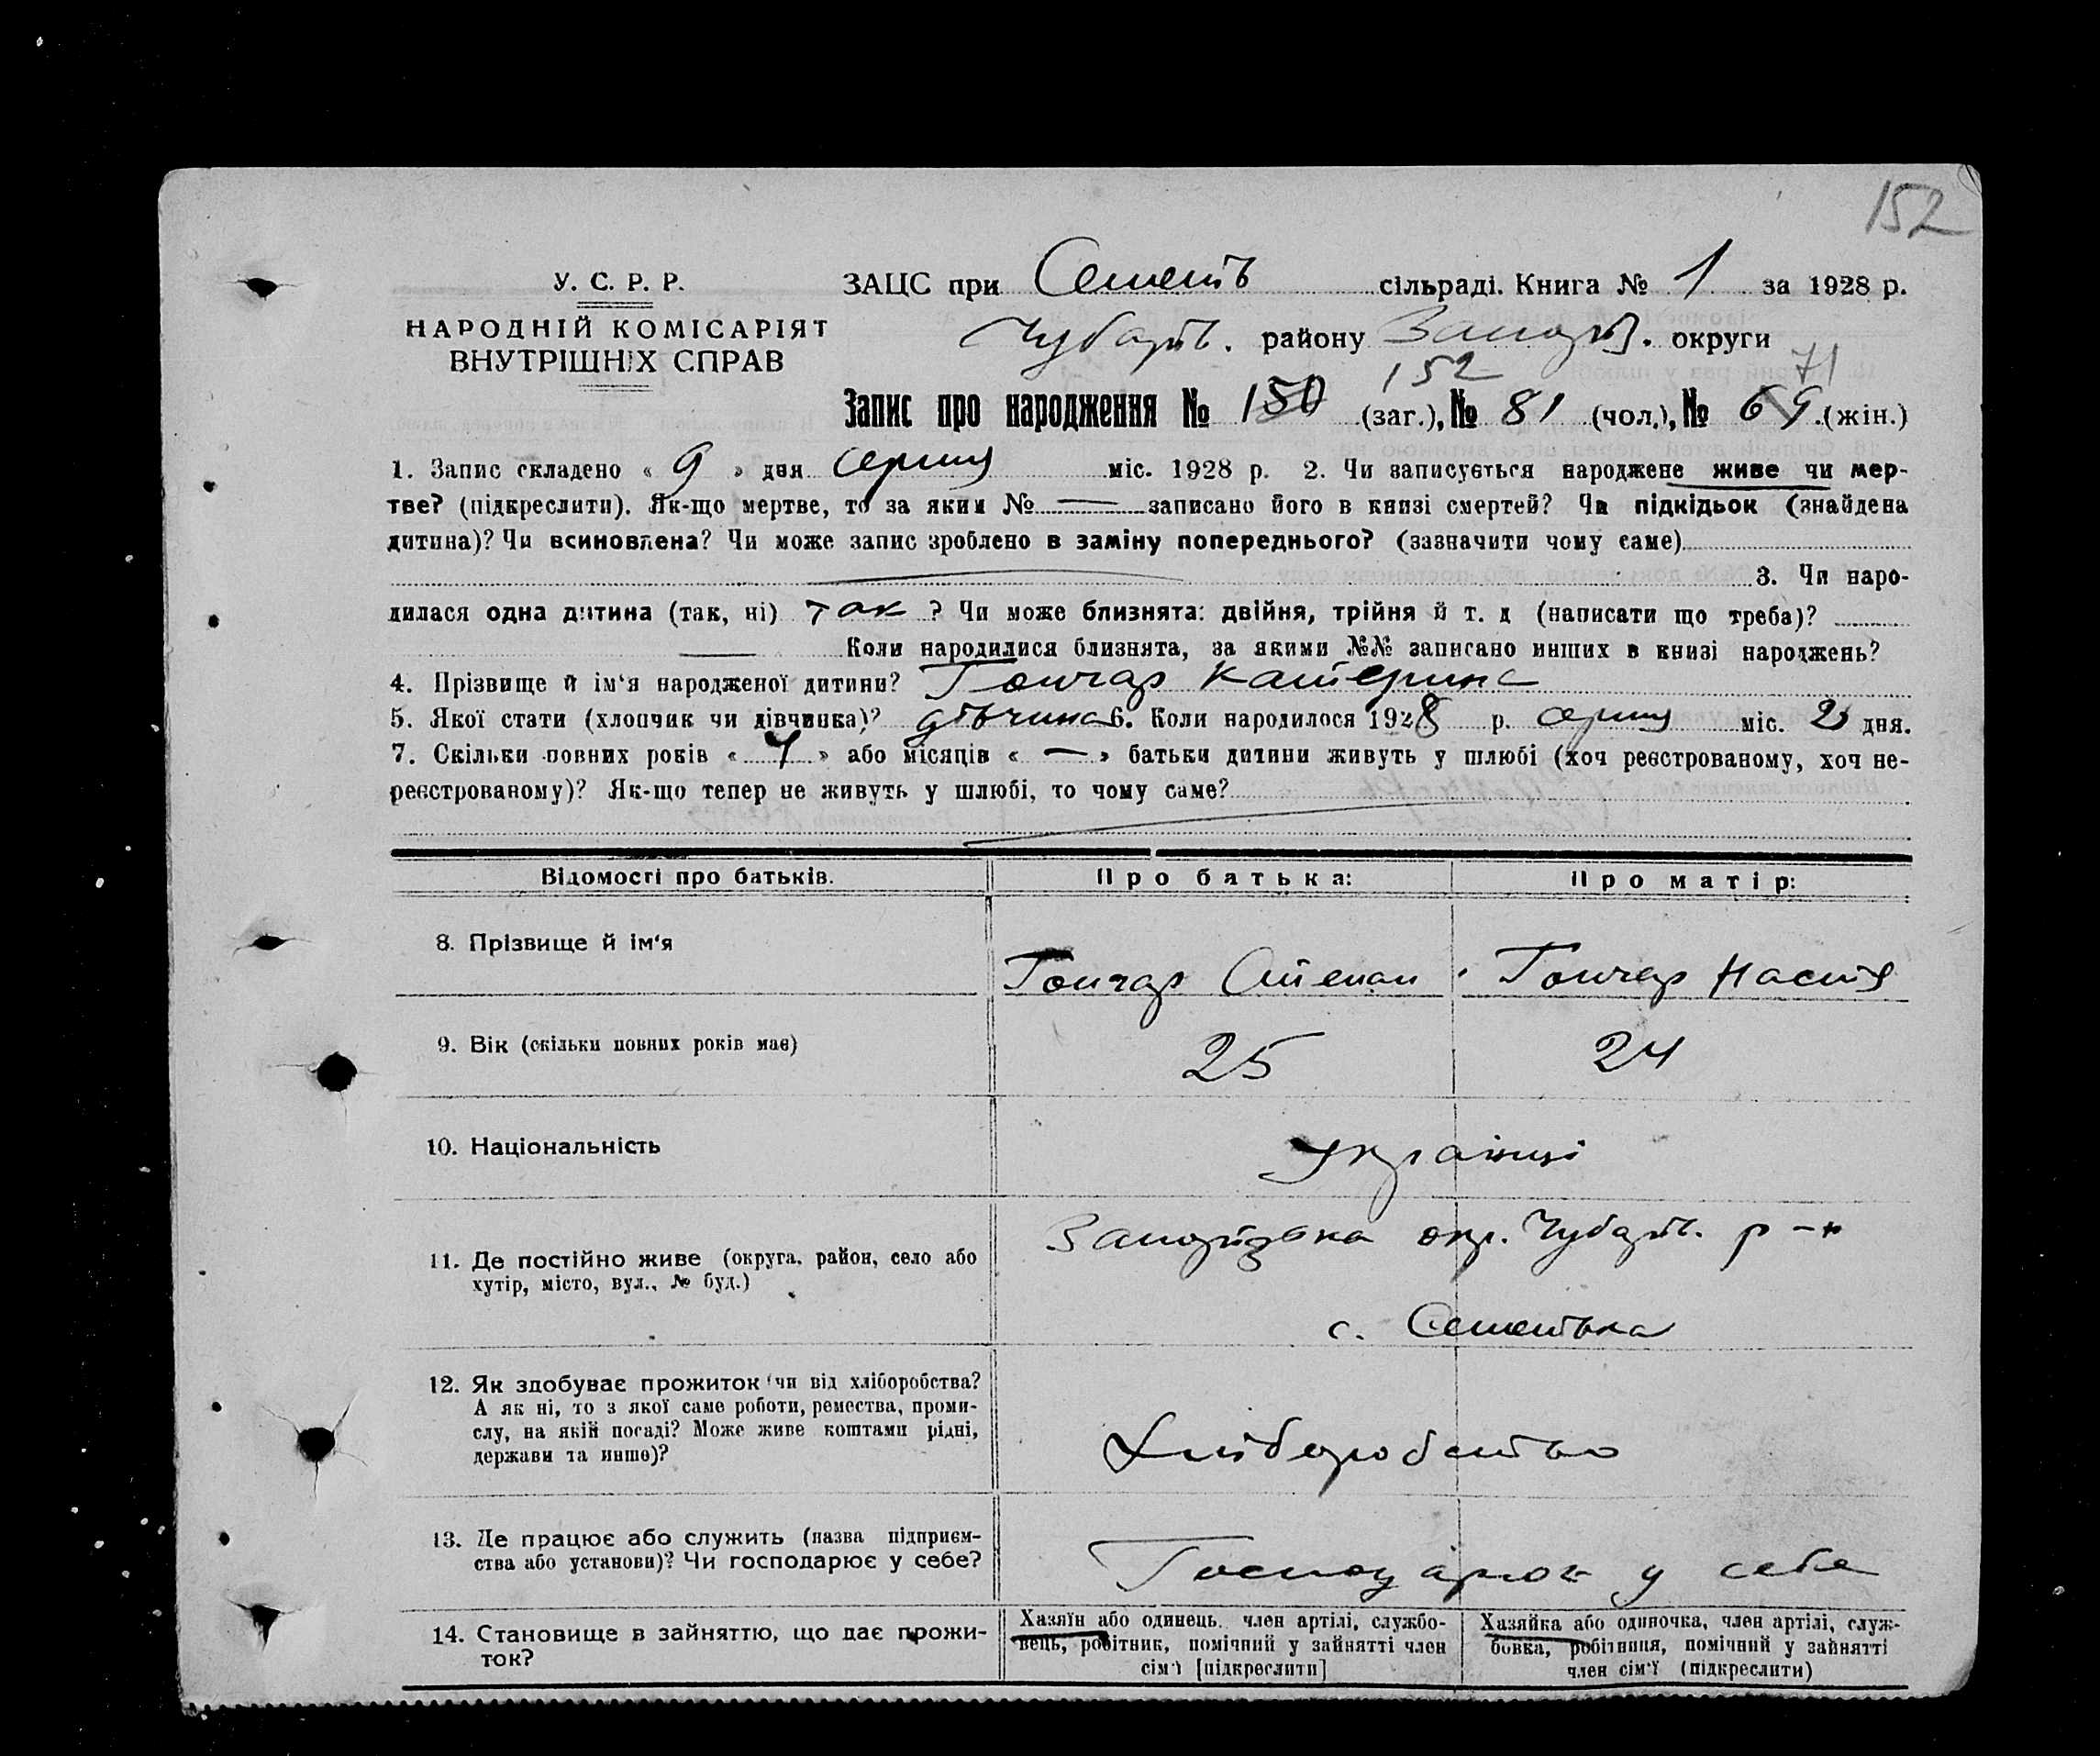 152
У. С. Р. Р.
НАРОДНІЙ КОМІСАРІЯТ
ВНУТРІШНІХ СПРАВ
ЗАЦС при Семенів сільраді. Книга № 1 за 1928 р.
Чубарів. району Запоріз. округи
152 71
Запис про народження № 150 (заг.), № 81 (чол.), № 69 (жін.)
1. Запис складено « 9 » дня серпня міс. 1928 р. 2. Чи записується народжене живе чи мер-
тве? (підкреслити). Як-що мертве, то за яким № — записано його в книзі смертей? Чи підкідьок (знайдена
дитина)? Чи всиновлена? Чи може запис зроблено в заміну попереднього? (зазначити чому саме)
3. Чи наро-
дилася одна дитина (так, ні) так ? Чи може близнята: двійня, трійня й т. д (написати що треба)?
— Коли народилися близнята, за якими №№ записано инших в книзі народжень?
4. Прізвище й ім‘я народженої дитини? Гончар Катерина
5. Якої стати (хлопчик чи дівчинка)? дівчина 6. Коли народилося 1928 р. серпня міс. 2 дня.
7. Скільки повних років « 4 » або місяців « — » батьки дитини живуть у шлюбі (хоч реєстрованому, хоч не-
реєстрованому)? Як-що тепер не живуть у шлюбі, то чому саме?
Відомості про батьків. Про батька: Про матір:
8. Прізвище й ім‘я Гончар Степан Гончар Настя
9. Вік (скільки повних років має) 25 24
10. Національність Українці
11. Де постійно живе (округа, район, село або
хутір, місто, вул., № буд.)
Запорізька окр. Чубарів. р-н
с. Семенівка
12. Як здобуває прожиток (чи від хліборобства?
А як ні, то з якої саме роботи, ремества, проми-
слу, на якій посаді? Може живе коштами рідні,
держави та инше)?
Хліборобство
13. Де працює або служить (назва підприєм-
ства або установи)? Чи господарює у себе?
Господарює у себе
14. Становище в зайняттю, що дає прожи-
ток?
Хазяїн або одинець, член артілі, службо-
вець, робітник, помічний у зайнятті член
сім‘ї [підкреслити]
Хазяйка або одиночка, член артілі, служ-
бовка, робітниця, помічний у зайнятті
член сім‘ї (підкреслити)